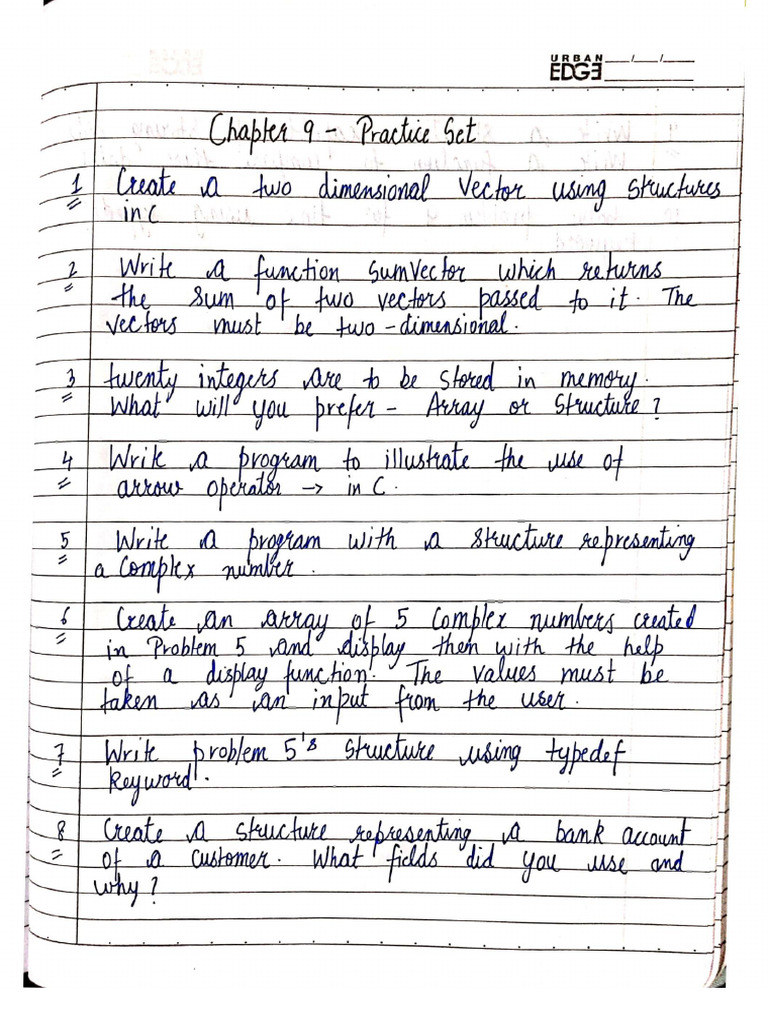 URBAN
EDGE
Chapter 9 - Practice Set
1 Create a two dimensional vector using structures
in C
2 Write a function sumVector which returns
the sum of two vectors passed to it. The
vectors must be two-dimensional.
3 twenty integers are to be stored in memory.
What will you prefer - Array or Structure?
4 Write a program to illustrate the use of
arrow operator → in C.
5 Write a program with a structure representing
a complex number.
6 Create an array of 5 complex numbers created
in Problem 5 and display them with the help
of a display function. The values must be
taken as an input from the user.
7 Write problem 5's structure using typedef
keyword.
8 Create a structure representing a bank account
of a customer. What fields did you use and
why?